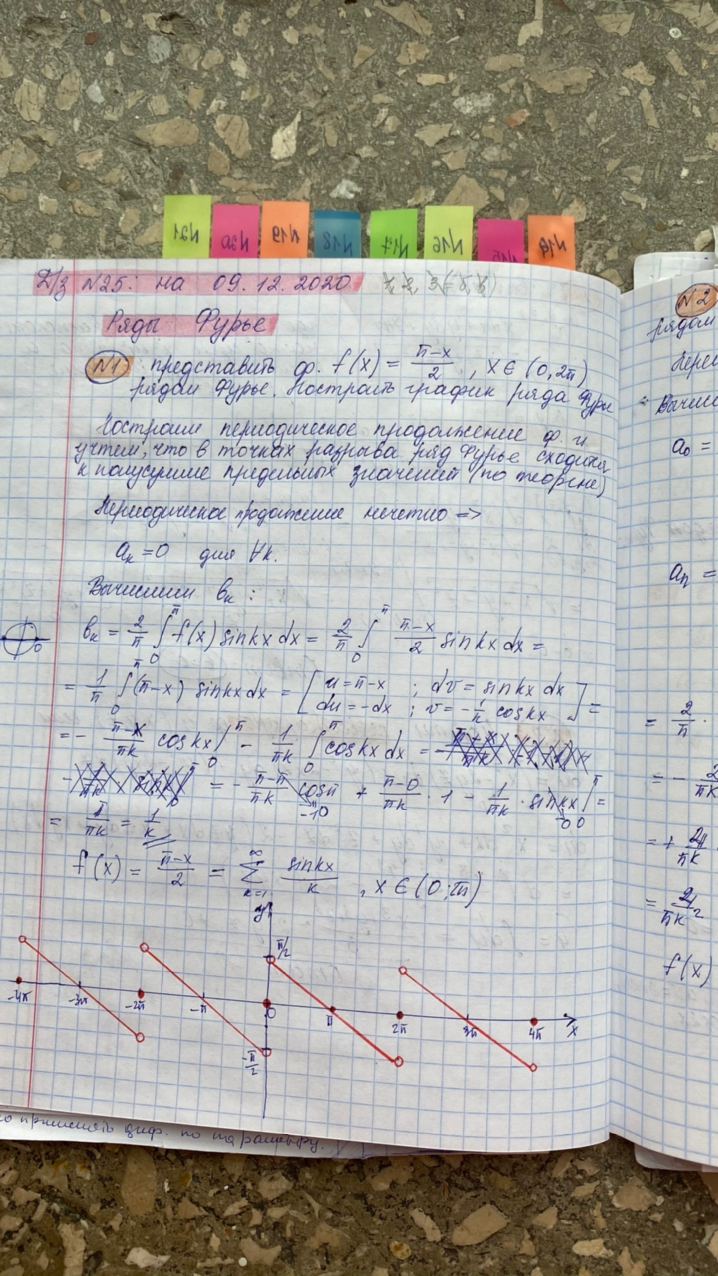 N21 N20 N19 N18 N17 N16 N15
Д/з N25: на 09.12.2020
Ряды Фурье
N1 представить ф. f(x) = (π-x)/2, x ∈ (0, 2π)
рядом Фурье. Построить график ряда Фурье
Построим периодическое продолжение ф. и
учтём, что в точках разрыва ряд Фурье сходится
к полусумме предельных значений (по теореме)
Периодическое продолжение нечетно =>
aₖ = 0 для ∀k.
Вычислим bₖ:
bₖ = 2/π ∫₀^π f(x) sinkx dx = 2/π ∫₀^π (π-x)/2 sinkx dx =
= 1/π ∫₀^π (π-x) sinkx dx = [u = π-x ; dv = sinkx dx
du = -dx ; v = -1/k coskx] =
= - (π-x)/(πk) coskx |₀^π - 1/(πk) ∫₀^π coskx dx =
= - (π-π)/(πk) cosπ + (π-0)/(πk) · 1 - 1/(πk) · sinkx |₀^π =
-1 0 0 0
= π/(πk) = 1/k
f(x) = (π-x)/2 = ∑ₖ₌₁^∞ sinkx/k, x ∈ (0; 2π)
y
π/2
-4π -3π -2π -π 0 π 2π 3π 4π x
-π/2
N2
рядом
Вычисл
a₀ =
aₙ =
= 2/π ·
= - 2/πk
= + 2/πk
= 2/πk²
f(x)